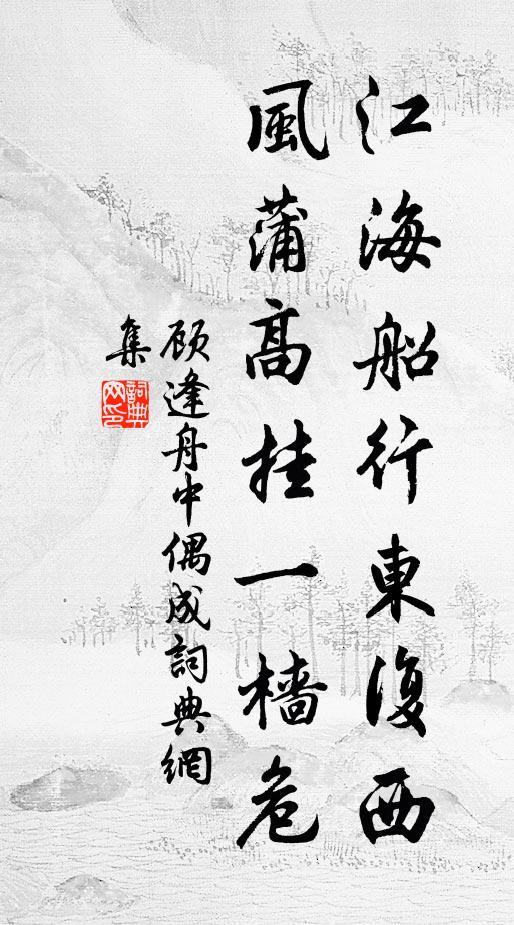 江海船行東復西
風蒲高挂一檣危
顧逢舟中偶成詞典網
集
詞典網印